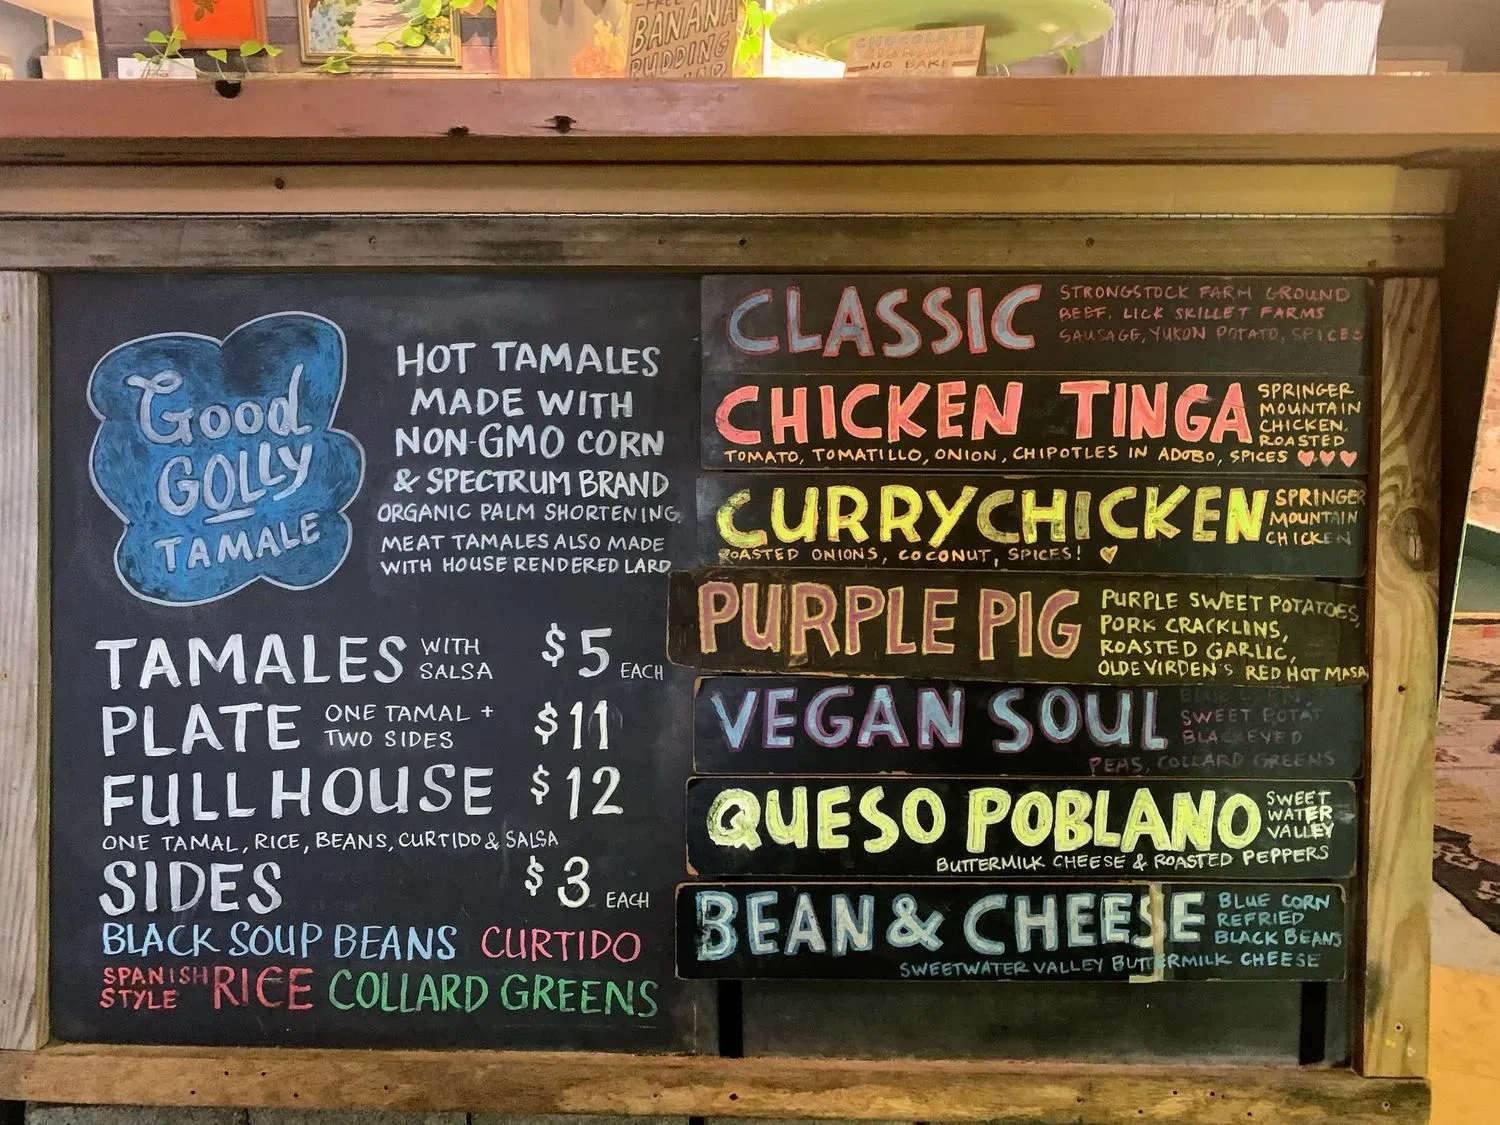 BANANA
PUDDING
CHOCOLATE
NO BAKE
Good
GOLLY
TAMALE
HOT TAMALES
MADE WITH
NON-GMO CORN
& SPECTRUM BRAND
ORGANIC PALM SHORTENING
MEAT TAMALES ALSO MADE
WITH HOUSE RENDERED LARD
TAMALES WITH SALSA $5 EACH
PLATE ONE TAMAL + TWO SIDES $11
FULL HOUSE $12
ONE TAMAL, RICE, BEANS, CURTIDO & SALSA
SIDES $3 EACH
BLACK SOUP BEANS CURTIDO
SPANISH STYLE RICE COLLARD GREENS
CLASSIC STRONGSTOCK FARM GROUND
BEEF, LICK SKILLET FARMS
SAUSAGE, YUKON POTATO, SPICES
CHICKEN TINGA SPRINGER
MOUNTAIN
CHICKEN,
ROASTED
TOMATO, TOMATILLO, ONION, CHIPOTLES IN ADOBO, SPICES
CURRY CHICKEN SPRINGER
MOUNTAIN
CHICKEN
ROASTED ONIONS, COCONUT, SPICES!
PURPLE PIG PURPLE SWEET POTATOES,
PORK CRACKLINS,
ROASTED GARLIC,
OLDE VIRDEN'S RED HOT MASA
VEGAN SOUL BLUE CORN,
SWEET POTAT
BLACKEYED
PEAS, COLLARD GREENS
QUESO POBLANO SWEET
WATER
VALLEY
BUTTERMILK CHEESE & ROASTED PEPPERS
BEAN & CHEESE BLUE CORN
REFRIED
BLACK BEANS
SWEETWATER VALLEY BUTTERMILK CHEESE